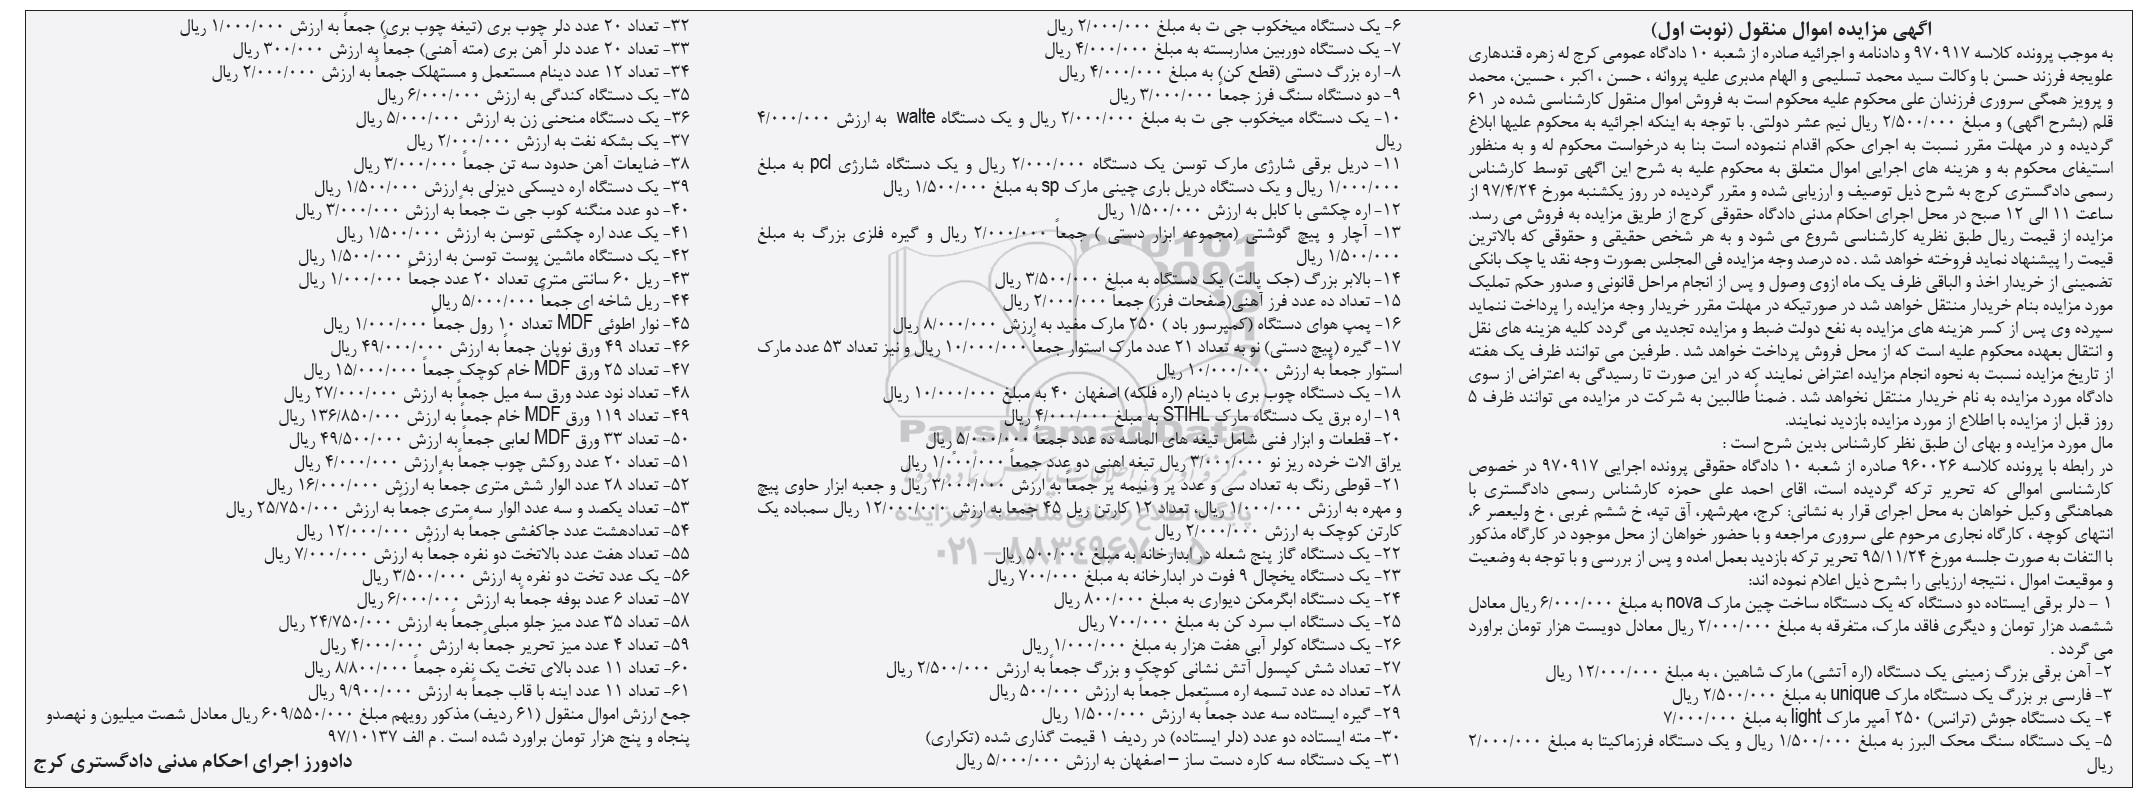 اگهی مزایده اموال منقول (نوبت اول)
به موجب پرونده کلاسه ۹۷۰۹۱۷ و دادنامه و اجرائیه صادره از شعبه ۱۰ دادگاه عمومی کرج له زهره قندهاری
علویجه فرزند حسن با وکالت سید محمد تسلیمی و الهام مدبری علیه پروانه ، حسن ، اکبر ، حسین، محمد
و پرویز همگی سروری فرزندان علی محکوم علیه محکوم است به فروش اموال منقول کارشناسی شده در ۶۱
قلم (بشرح اگهی) و مبلغ ۲/۵۰۰/۰۰۰ ریال نیم عشر دولتی. با توجه به اینکه اجرائیه به محکوم علیها ابلاغ
گردیده و در مهلت مقرر نسبت به اجرای حکم اقدام ننموده است بنا به درخواست محکوم له و به منظور
استیفای محکوم به و هزینه های اجرایی اموال متعلق به محکوم علیه به شرح این اگهی توسط کارشناس
رسمی دادگستری کرج به شرح ذیل توصیف و ارزیابی شده و مقرر گردیده در روز یکشنبه مورخ ۹۷/۴/۲۴ از
ساعت ۱۱ الی ۱۲ صبح در محل اجرای احکام مدنی دادگاه حقوقی کرج از طریق مزایده به فروش می رسد.
مزایده از قیمت ریال طبق نظریه کارشناسی شروع می شود و به هر شخص حقیقی و حقوقی که بالاترین
قیمت را پیشنهاد نماید فروخته خواهد شد . ده درصد وجه مزایده فی المجلس بصورت وجه نقد یا چک بانکی
تضمینی از خریدار اخذ و الباقی ظرف یک ماه ازوی وصول و پس از انجام مراحل قانونی و صدور حکم تملیک
مورد مزایده بنام خریدار منتقل خواهد شد در صورتیکه در مهلت مقرر خریدار وجه مزایده را پرداخت ننماید
سپرده وی پس از کسر هزینه های مزایده به نفع دولت ضبط و مزایده تجدید می گردد کلیه هزینه های نقل
و انتقال بعهده محکوم علیه است که از محل فروش پرداخت خواهد شد . طرفین می توانند ظرف یک هفته
از تاریخ مزایده نسبت به نحوه انجام مزایده اعتراض نمایند که در این صورت تا رسیدگی به اعتراض از سوی
دادگاه مورد مزایده به نام خریدار منتقل نخواهد شد . ضمناً طالبین به شرکت در مزایده می توانند ظرف ۵
روز قبل از مزایده با اطلاع از مورد مزایده بازدید نمایند.
مال مورد مزایده و بهای ان طبق نظر کارشناس بدین شرح است :
در رابطه با پرونده کلاسه ۹۶۰۰۲۶ صادره از شعبه ۱۰ دادگاه حقوقی پرونده اجرایی ۹۷۰۹۱۷ در خصوص
کارشناسی اموالی که تحریر ترکه گردیده است، اقای احمد علی حمزه کارشناس رسمی دادگستری با
هماهنگی وکیل خواهان به محل اجرای قرار به نشانی: کرج، مهرشهر، آق تپه، خ ششم غربی ، خ ولیعصر ۶،
انتهای کوچه ، کارگاه نجاری مرحوم علی سروری مراجعه و با حضور خواهان از محل موجود در کارگاه مذکور
با التفات به صورت جلسه مورخ ۹۵/۱۱/۲۴ تحریر ترکه بازدید بعمل امده و پس از بررسی و با توجه به وضعیت
و موقیعت اموال ، نتیجه ارزیابی را بشرح ذیل اعلام نموده اند:
۱ – دلر برقی ایستاده دو دستگاه که یک دستگاه ساخت چین مارک nova به مبلغ ۶/۰۰۰/۰۰۰ ریال معادل
ششصد هزار تومان و دیگری فاقد مارک، متفرقه به مبلغ ۲/۰۰۰/۰۰۰ ریال معادل دویست هزار تومان براورد
می گردد .
۲- آهن برقی بزرگ زمینی یک دستگاه (اره آتشی) مارک شاهین ، به مبلغ ۱۲/۰۰۰/۰۰۰ ریال
۳- فارسی بر بزرگ یک دستگاه مارک unique به مبلغ ۲/۵۰۰/۰۰۰ ریال
۴- یک دستگاه جوش (ترانس) ۲۵۰ آمپر مارک light به مبلغ ۷/۰۰۰/۰۰۰
۵- یک دستگاه سنگ محک البرز به مبلغ ۱/۵۰۰/۰۰۰ ریال و یک دستگاه فرزماکیتا به مبلغ ۲/۰۰۰/۰۰۰
ریال
۶- یک دستگاه میخکوب جی ت به مبلغ ۲/۰۰۰/۰۰۰ ریال
۷- یک دستگاه دوربین مداربسته به مبلغ ۴/۰۰۰/۰۰۰ ریال
۸- اره بزرگ دستی (قطع کن) به مبلغ ۴/۰۰۰/۰۰۰ ریال
۹- دو دستگاه سنگ فرز جمعاً ۳/۰۰۰/۰۰۰ ریال
۱۰- یک دستگاه میخکوب جی ت به مبلغ ۲/۰۰۰/۰۰۰ ریال و یک دستگاه walte به ارزش ۴/۰۰۰/۰۰۰
ریال
۱۱- دریل برقی شارژی مارک توسن یک دستگاه ۲/۰۰۰/۰۰۰ ریال و یک دستگاه شارژی pcl به مبلغ
۱/۰۰۰/۰۰۰ ریال و یک دستگاه دریل باری چینی مارک sp به مبلغ ۱/۵۰۰/۰۰۰ ریال
۱۲- اره چکشی با کابل به ارزش ۱/۵۰۰/۰۰۰ ریال
۱۳- آچار و پیچ گوشتی (مجموعه ابزار دستی ) جمعاً ۲/۰۰۰/۰۰۰ ریال و گیره فلزی بزرگ به مبلغ
۱/۵۰۰/۰۰۰ ریال
۱۴- بالابر بزرگ (جک پالت) یک دستگاه به مبلغ ۳/۵۰۰/۰۰۰ ریال
۱۵- تعداد ده عدد فرز آهنی(صفحات فرز) جمعاً ۲/۰۰۰/۰۰۰ ریال
۱۶- پمپ هوای دستگاه (کمپرسور باد ) ۲۵۰ مارک مفید به ارزش ۸/۰۰۰/۰۰۰ ریال
۱۷- گیره (پیچ دستی) نو به تعداد ۲۱ عدد مارک استوار جمعاً ۱۰/۰۰۰/۰۰۰ ریال و نیز تعداد ۵۳ عدد مارک
استوار جمعاً به ارزش ۱۰/۰۰۰/۰۰۰ ریال
۱۸- یک دستگاه چوب بری با دینام (اره فلکه) اصفهان ۴۰ به مبلغ ۱۰/۰۰۰/۰۰۰ ریال
۱۹- اره برق یک دستگاه مارک STIHL به مبلغ ۴/۰۰۰/۰۰۰ ریال
۲۰- قطعات و ابزار فنی شامل تیغه های الماسه ده عدد جمعاً ۵/۰۰۰/۰۰۰ ریال
یراق الات خرده ریز نو ۳/۰۰۰/۰۰۰ ریال تیغه اهنی دو عدد جمعاً ۱/۰۰۰/۰۰۰ ریال
۲۱- قوطی رنگ به تعداد سی و عدد پر و نیمه پر جمعاً به ارزش ۳/۰۰۰/۰۰۰ ریال و جعبه ابزار حاوی پیچ
و مهره به ارزش ۱/۰۰۰/۰۰۰ ریال، تعداد ۱۲ کارتن ریل ۴۵ جمعا به ارزش ۱۲/۰۰۰/۰۰۰ ریال سمباده یک
کارتن کوچک به ارزش ۲/۰۰۰/۰۰۰ ریال
۲۲- یک دستگاه گاز پنج شعله در ابدارخانه به مبلغ ۵۰۰/۰۰۰ ریال
۲۳- یک دستگاه یخچال ۹ فوت در ابدارخانه به مبلغ ۷۰۰/۰۰۰ ریال
۲۴- یک دستگاه ابگرمکن دیواری به مبلغ ۸۰۰/۰۰۰ ریال
۲۵- یک دستگاه اب سرد کن به مبلغ ۷۰۰/۰۰۰ ریال
۲۶- یک دستگاه کولر آبی هفت هزار به مبلغ ۱/۰۰۰/۰۰۰ ریال
۲۷- تعداد شش کپسول آتش نشانی کوچک و بزرگ جمعاً به ارزش ۲/۵۰۰/۰۰۰ ریال
۲۸- تعداد ده عدد تسمه اره مستعمل جمعاً به ارزش ۵۰۰/۰۰۰ ریال
۲۹- گیره ایستاده سه عدد جمعاً به ارزش ۱/۵۰۰/۰۰۰ ریال
۳۰- مته ایستاده دو عدد (دلر ایستاده) در ردیف ۱ قیمت گذاری شده (تکراری)
۳۱- یک دستگاه سه کاره دست ساز – اصفهان به ارزش ۵/۰۰۰/۰۰۰ ریال
۳۲- تعداد ۲۰ عدد دلر چوب بری (تیغه چوب بری) جمعاً به ارزش ۱/۰۰۰/۰۰۰ ریال
۳۳- تعداد ۲۰ عدد دلر آهن بری (مته آهنی) جمعاً به ارزش ۳۰۰/۰۰۰ ریال
۳۴- تعداد ۱۲ عدد دینام مستعمل و مستهلک جمعاً به ارزش ۲/۰۰۰/۰۰۰ ریال
۳۵- یک دستگاه کندگی به ارزش ۶/۰۰۰/۰۰۰ ریال
۳۶- یک دستگاه منحنی زن به ارزش ۵/۰۰۰/۰۰۰ ریال
۳۷- یک بشکه نفت به ارزش ۲/۰۰۰/۰۰۰ ریال
۳۸- ضایعات آهن حدود سه تن جمعاً ۳/۰۰۰/۰۰۰ ریال
۳۹- یک دستگاه اره دیسکی دیزلی به ارزش ۱/۵۰۰/۰۰۰ ریال
۴۰- دو عدد منگنه کوب جی ت جمعاً به ارزش ۳/۰۰۰/۰۰۰ ریال
۴۱- یک عدد اره چکشی توسن به ارزش ۱/۵۰۰/۰۰۰ ریال
۴۲- یک دستگاه ماشین پوست توسن به ارزش ۱/۵۰۰/۰۰۰ ریال
۴۳- ریل ۶۰ سانتی متری تعداد ۲۰ عدد جمعاً ۱/۰۰۰/۰۰۰ ریال
۴۴- ریل شاخه ای جمعاً ۵/۰۰۰/۰۰۰ ریال
۴۵- نوار اطوئی MDF تعداد ۱۰ رول جمعاً ۱/۰۰۰/۰۰۰ ریال
۴۶- تعداد ۴۹ ورق نوپان جمعاً به ارزش ۴۹/۰۰۰/۰۰۰ ریال
۴۷- تعداد ۲۵ ورق MDF خام کوچک جمعاً ۱۵/۰۰۰/۰۰۰ ریال
۴۸- تعداد نود عدد ورق سه میل جمعاً به ارزش ۲۷/۰۰۰/۰۰۰ ریال
۴۹- تعداد ۱۱۹ ورق MDF خام جمعاً به ارزش ۱۳۶/۸۵۰/۰۰۰ ریال
۵۰- تعداد ۳۳ ورق MDF لعابی جمعاً به ارزش ۴۹/۵۰۰/۰۰۰ ریال
۵۱- تعداد ۲۰ عدد روکش چوب جمعاً به ارزش ۴/۰۰۰/۰۰۰ ریال
۵۲- تعداد ۲۸ عدد الوار شش متری جمعاً به ارزش ۱۶/۰۰۰/۰۰۰ ریال
۵۳- تعداد یکصد و سه عدد الوار سه متری جمعاً به ارزش ۲۵/۷۵۰/۰۰۰ ریال
۵۴- تعدادهشت عدد جاکفشی جمعاً به ارزش ۱۲/۰۰۰/۰۰۰ ریال
۵۵- تعداد هفت عدد بالاتخت دو نفره جمعاً به ارزش ۷/۰۰۰/۰۰۰ ریال
۵۶- یک عدد تخت دو نفره به ارزش ۳/۵۰۰/۰۰۰ ریال
۵۷- تعداد ۶ عدد بوفه جمعاً به ارزش ۶/۰۰۰/۰۰۰ ریال
۵۸- تعداد ۳۵ عدد میز جلو مبلی جمعاً به ارزش ۲۴/۷۵۰/۰۰۰ ریال
۵۹- تعداد ۴ عدد میز تحریر جمعاً به ارزش ۴/۰۰۰/۰۰۰ ریال
۶۰- تعداد ۱۱ عدد بالای تخت یک نفره جمعاً ۸/۸۰۰/۰۰۰ ریال
۶۱- تعداد ۱۱ عدد اینه با قاب جمعاً به ارزش ۹/۹۰۰/۰۰۰ ریال
جمع ارزش اموال منقول (۶۱ ردیف) مذکور رویهم مبلغ ۶۰۹/۵۵۰/۰۰۰ ریال معادل شصت میلیون و نهصدو
پنجاه و پنج هزار تومان براورد شده است . م الف ۹۷/۱۰۱۳۷
دادورز اجرای احکام مدنی دادگستری کرج
ParsNamadData
۰۲۱–۸۸۳۴۹۶۷۰–۵